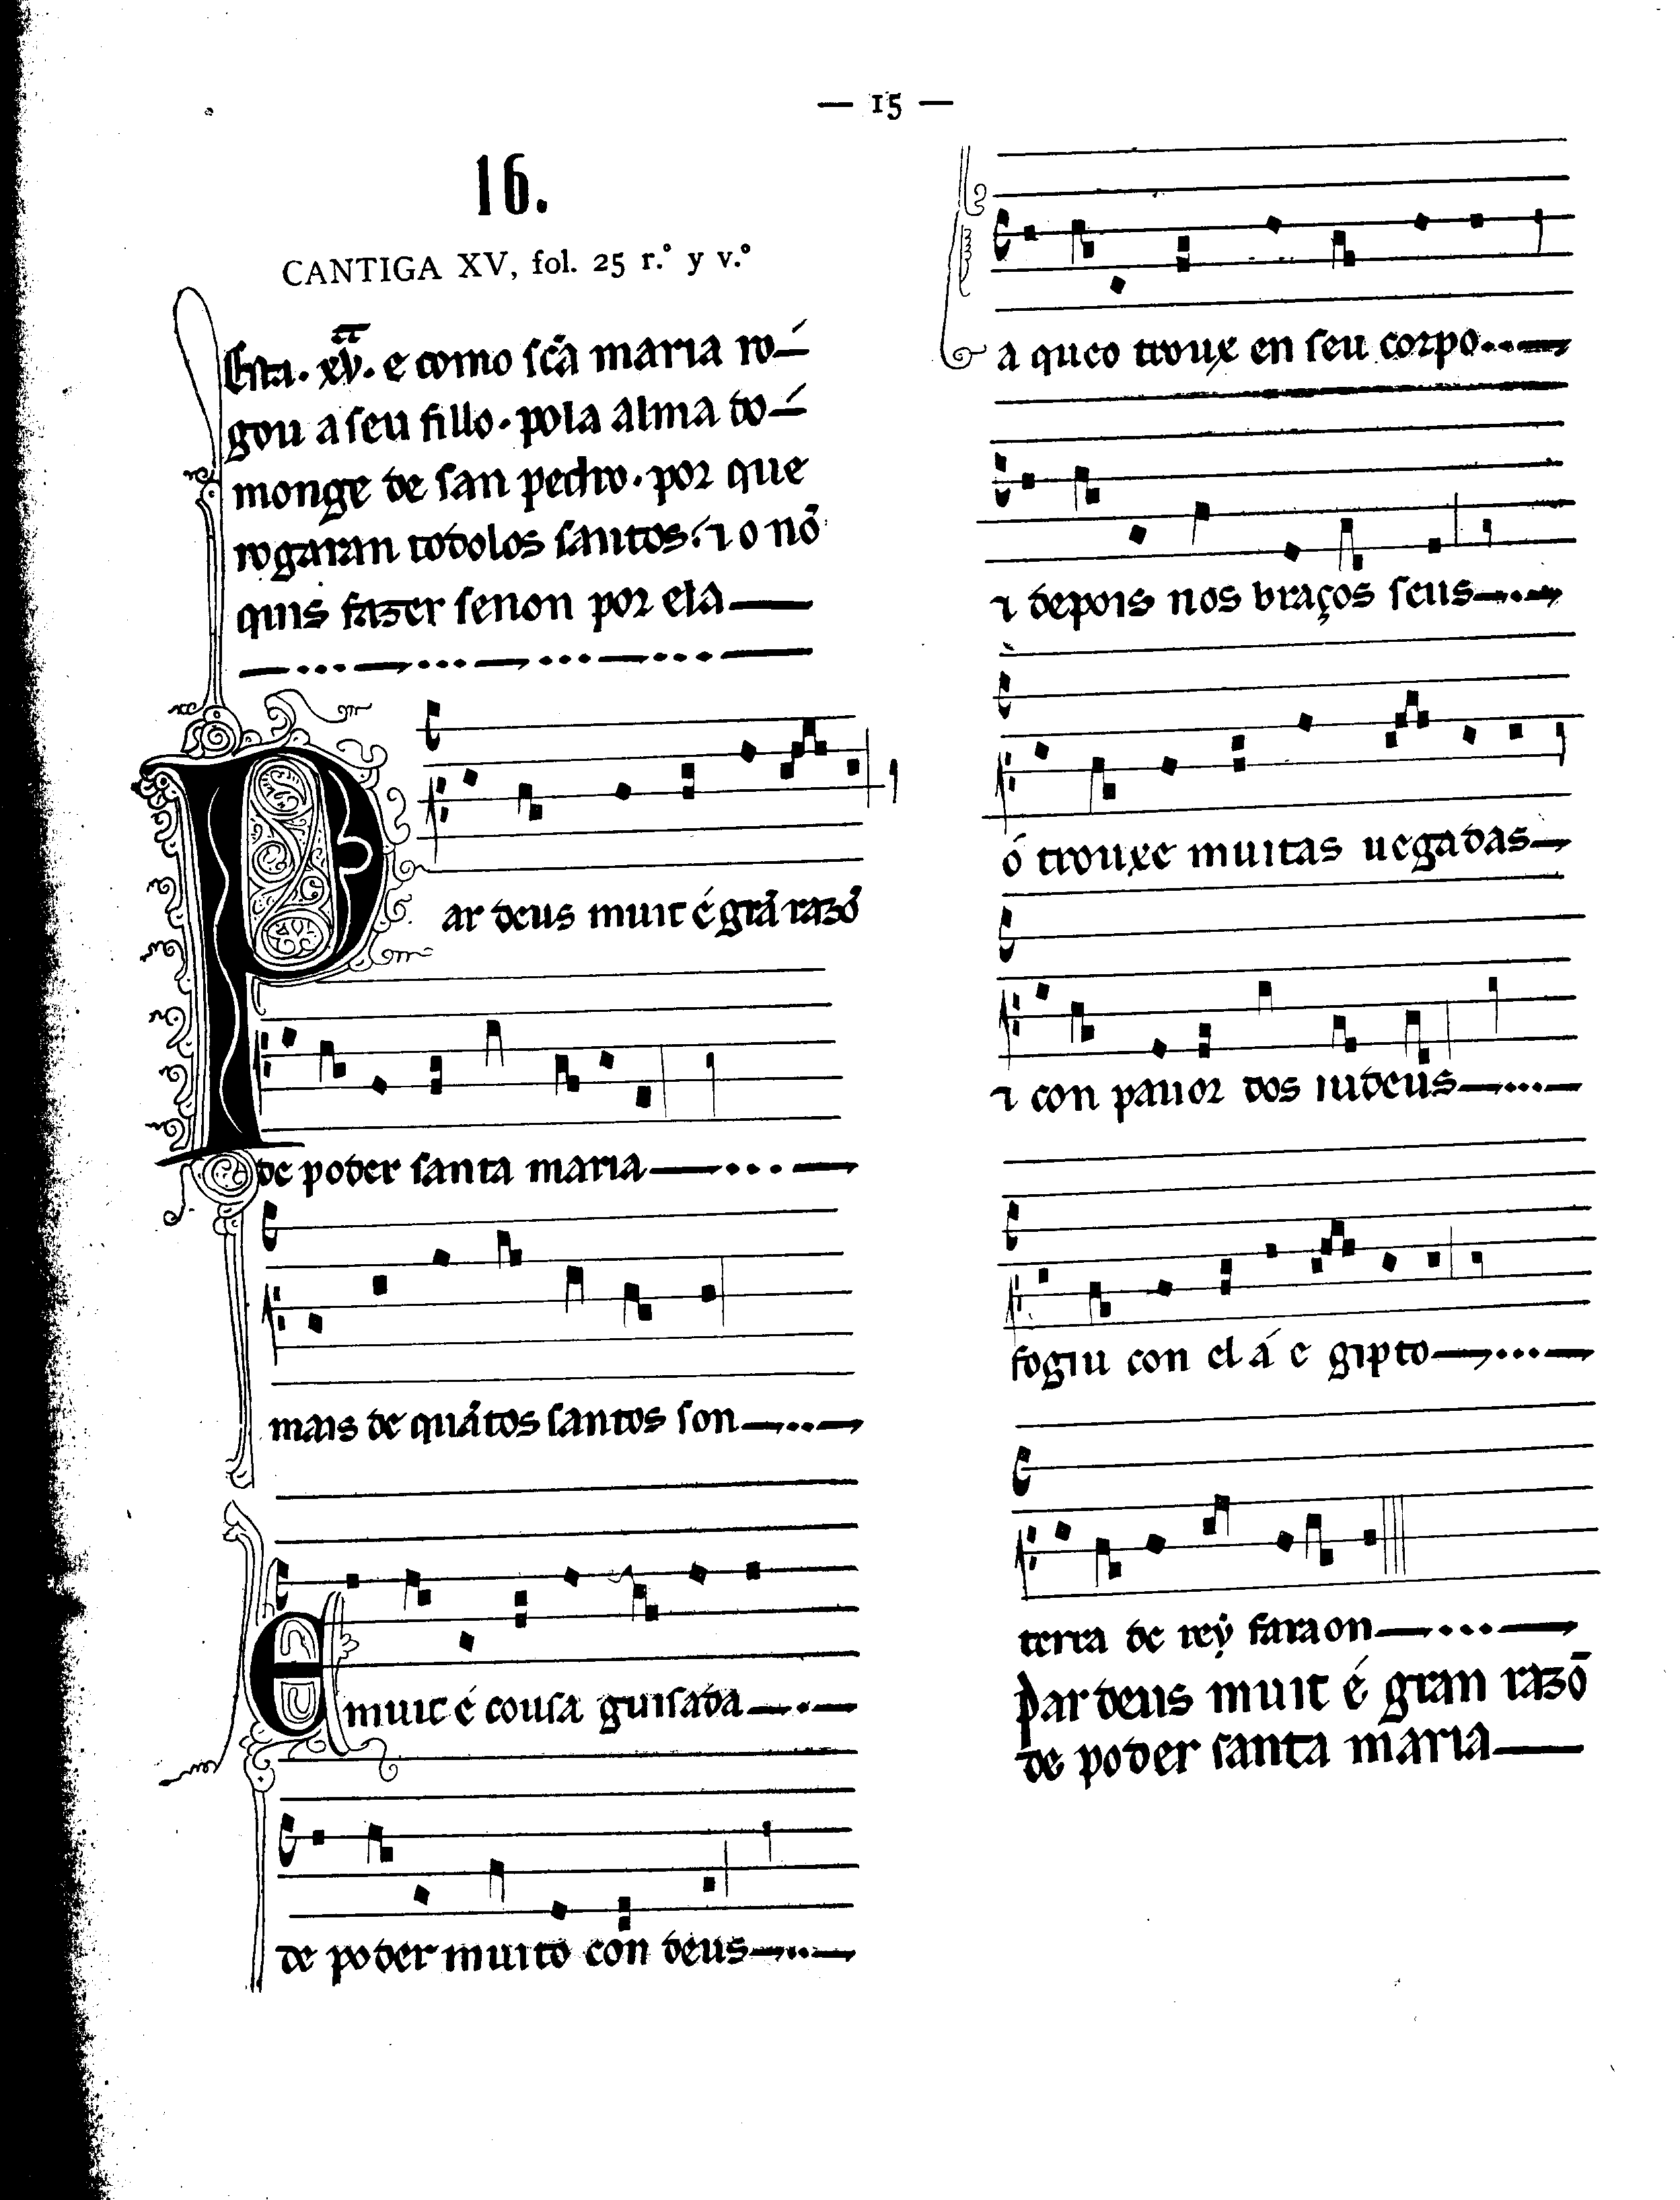 — 15 —
16.
CANTIGA XV, fol. 25 r.° y v.°
Esta. xv. e como scã maria ro-
gou a seu fillo. pola alma do-
monge de san pedro. por que
rogaran todolos santos. ⁊ o nõ
quis fazer senon por ela
Par deus muit é grã razõ
de poder santa maria
mais de quãtos santos son
E muit é cousa guisada
de poder muito con deus
a queo troux en seu corpo
⁊ depois nos braços seus
ó trouxe muitas uegadas
⁊ con pauor dos iudeus
fogiu con el á e gipto
terra de reẏ faraon
Par deus muit é gran razõ
de poder santa maria